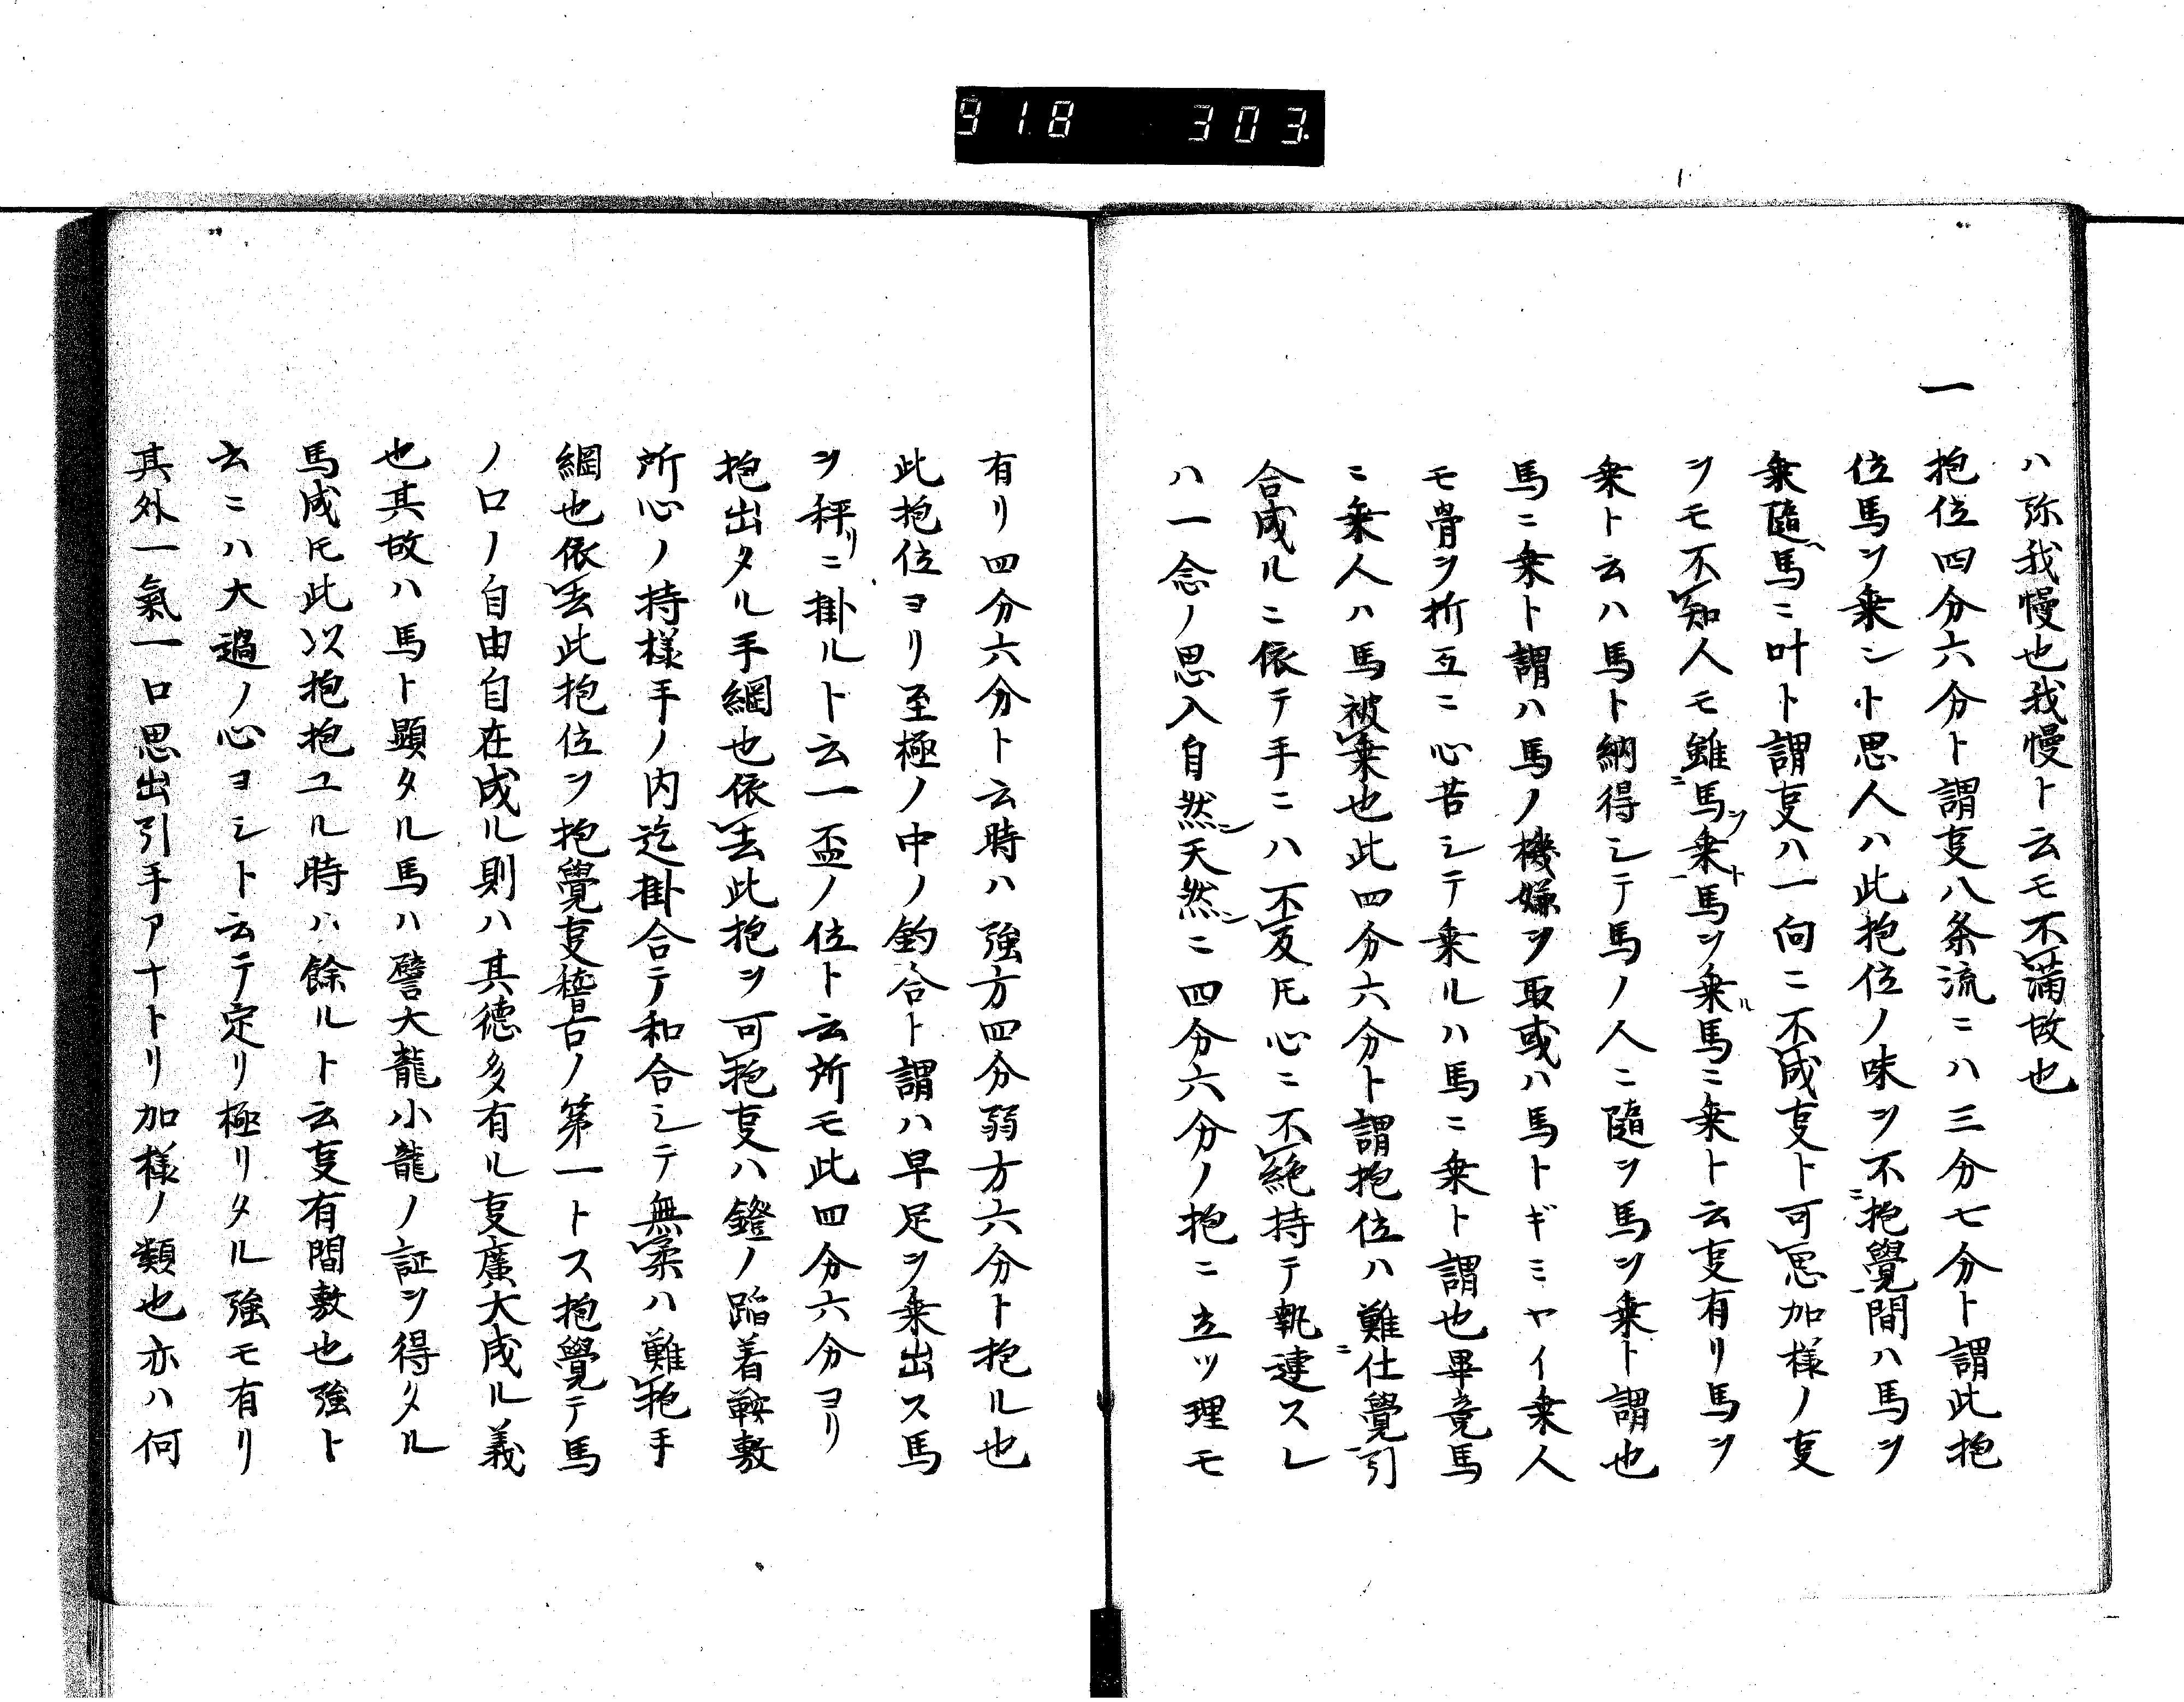 918 303.
ハ弥我慢也我慢ト云モ不満故也
一 抱位四分六分ト謂叓八条流ニハ三分七分ト謂此抱
位馬ヲ乗シト思人ハ此抱位ノ味ヲ不抱覺間ハ馬ヲ
乗隨馬ニ叶ト謂叓ハ一向ニ不成叓ト可思加様ノ叓
ヲモ不知人モ雖馬乗馬ヲ乗馬ニ乗ト云叓有リ馬ヲ
乗ト云ハ馬ト納得シテ馬ノ人ニ隨ヲ馬ヲ乗ト謂也
馬ニ乗ト謂ハ馬ノ機嫌ヲ取或ハ馬トギミヤイ乗人
モ骨ヲ折互ニ心苦シテ乗ルハ馬ニ乗ト謂也畢竟馬
ニ乗人ハ馬被乗也此四分六分ト謂抱位ハ難仕覺引
合成ルニ依テ手ニハ不及𪜈心ニ不絶持テ執連スレ
ハ一念ノ思入自然天然ニ四分六分ノ抱ニ立ツ理モ
有リ四分六分ト云時ハ強方四分弱方六分ト抱ル也
此抱位ヨリ至極ノ中ノ釣合ト謂ハ早足ヲ乗出ス馬
ヲ秤リニ掛ルト云一盃ノ位ト云所モ此四分六分ヨリ
抱出タル手綱也依去此抱ヲ可抱叓ハ鐙ノ踏着鞍敷
所心ノ持様手ノ内迄掛合テ和合シテ無案ハ難抱手
綱也依去此抱位ヲ抱覺叓稽古ノ第一トス抱覺テ馬
ノ口ノ自由自在成ル則ハ其徳多有ル叓廣大成ル義
也其故ハ馬ト顕タル馬ハ譬大龍小龍ノ証ヲ得タル
馬成𪜈此以抱抱ユル時ハ餘ルト云叓有間敷也強ト
云ニハ大過ノ心ヨシト云テ定リ極リタル強モ有リ
其外一氣一口思出引手アナトリ加様ノ類也亦ハ何